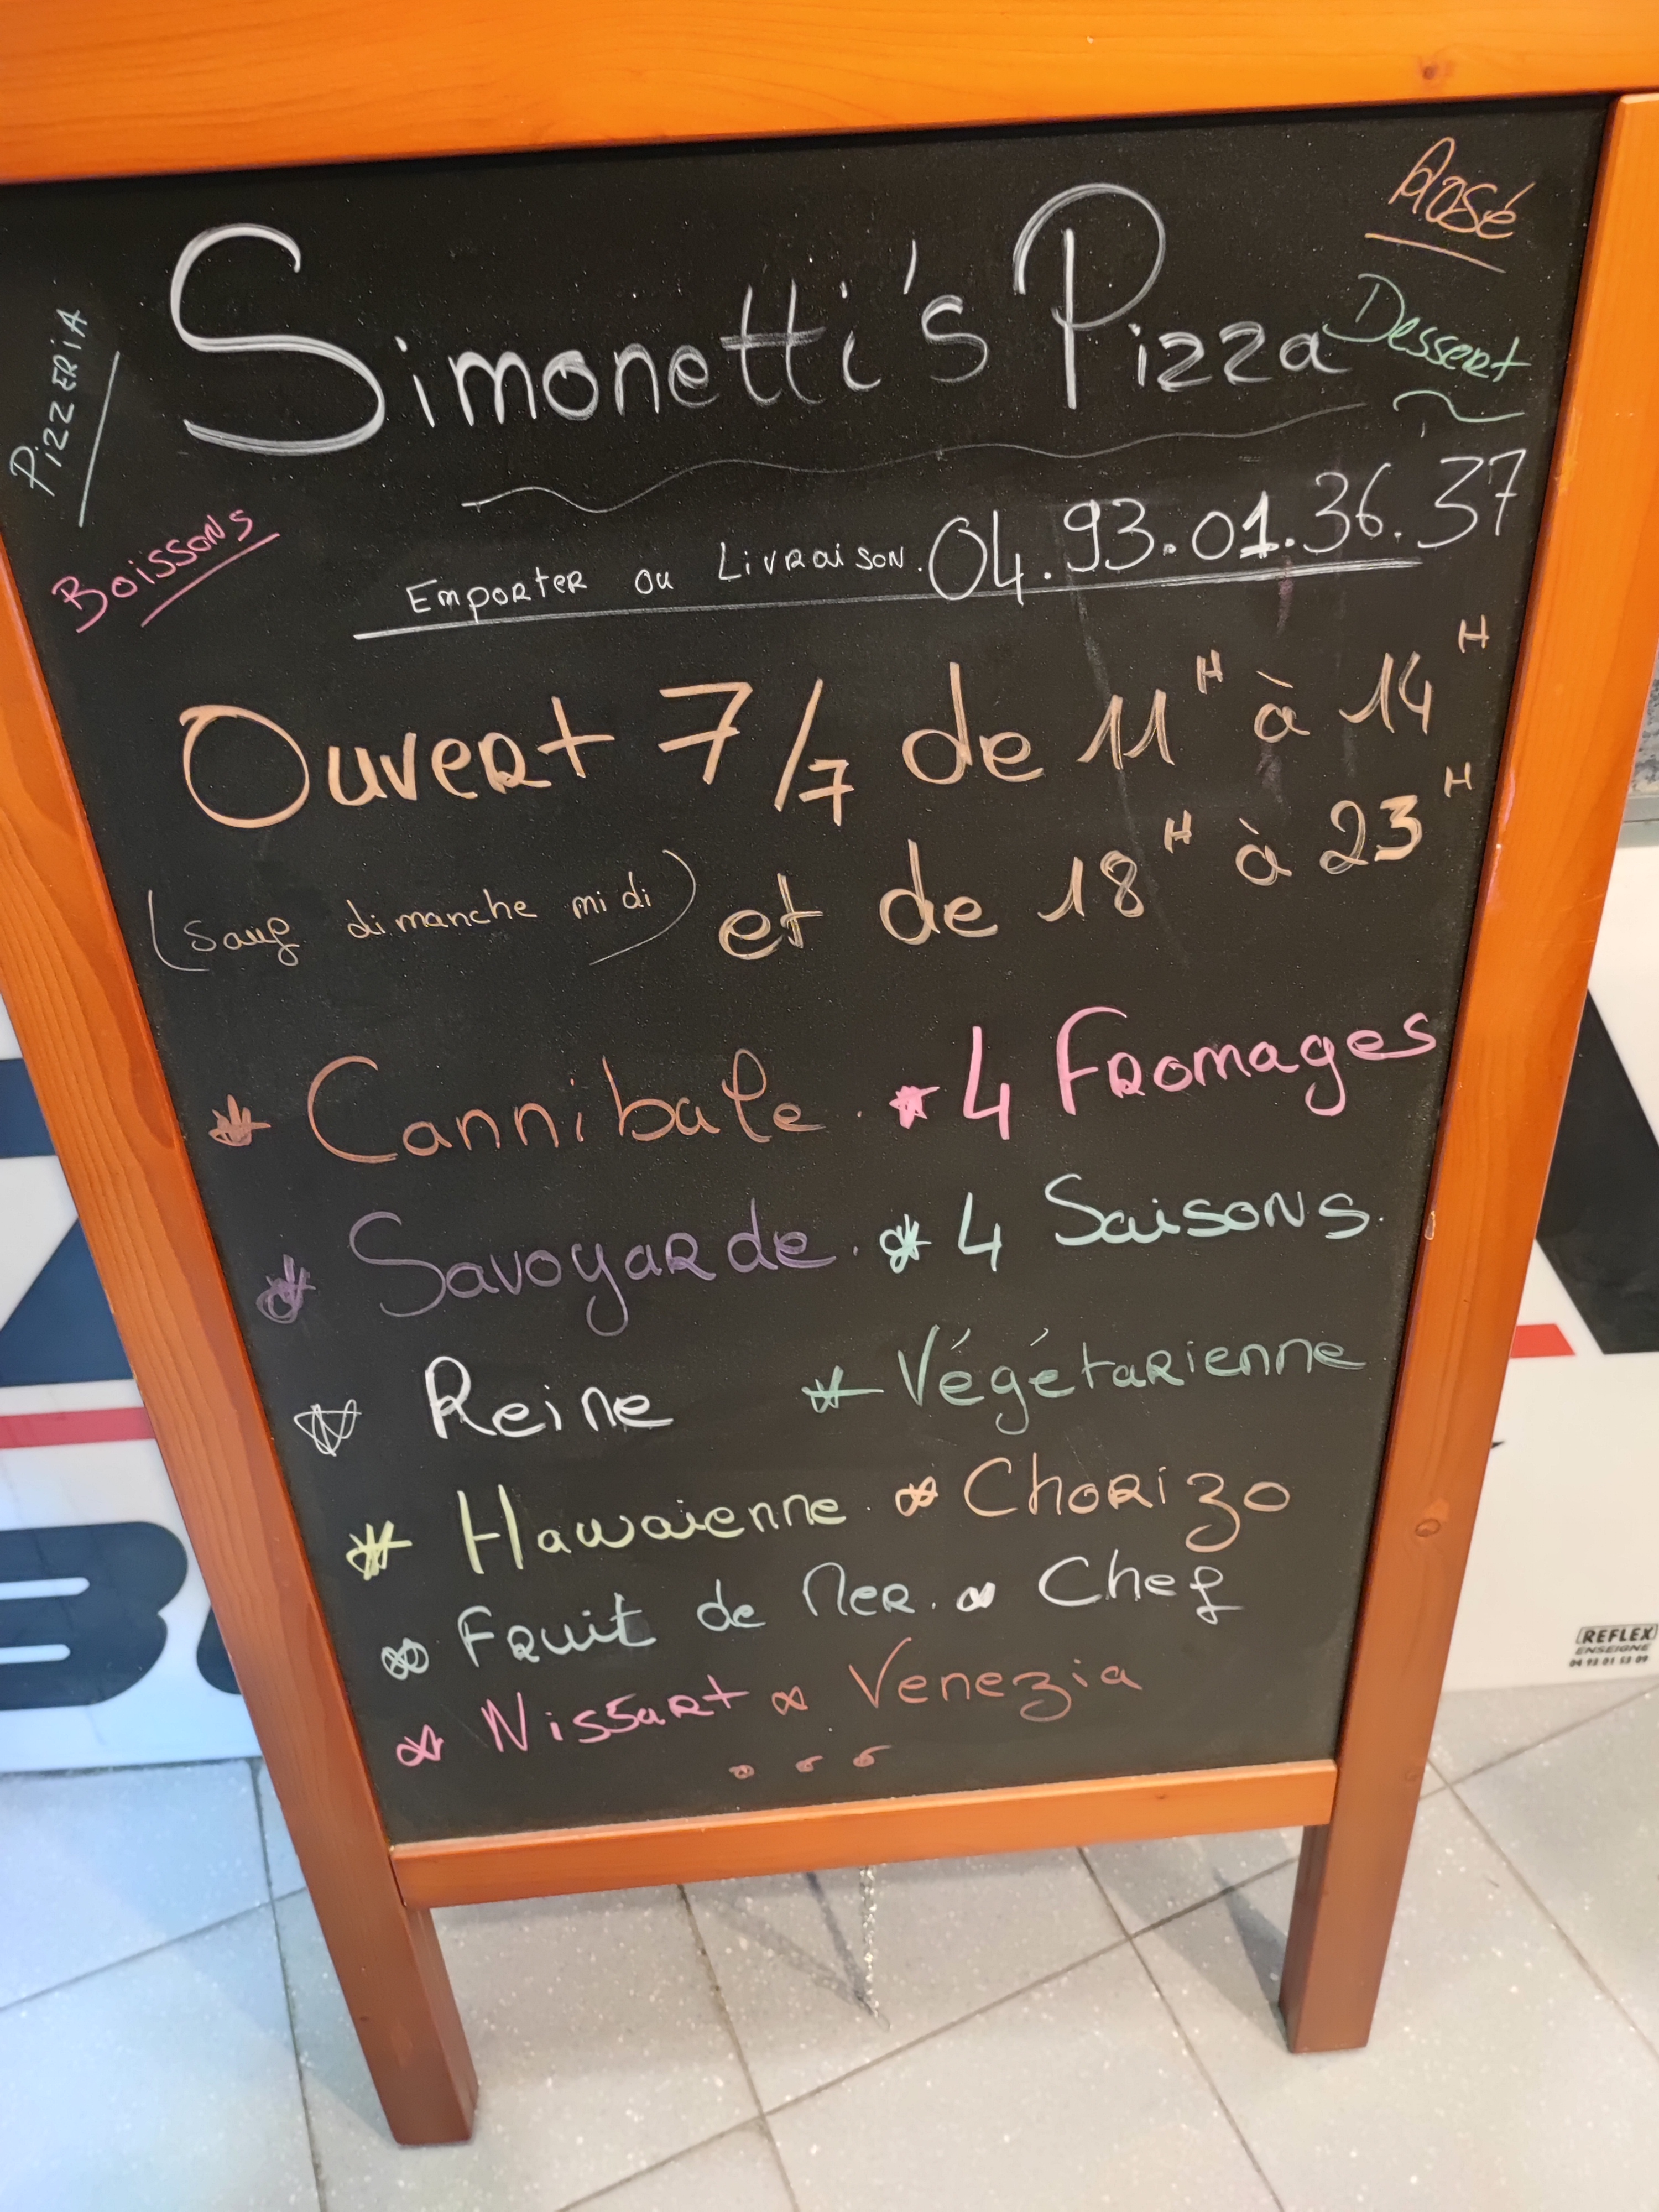 Rosé
Simonetti's Pizza
Dessert
PizzERiA
Boissons
Emporter ou Livraison. 04.93.01.36.37
Ouvert 7/7 de 11H à 14H
(sauf dimanche midi) et de 18H à 23H
* Cannibale. * 4 Fromages
* Savoyarde. * 4 Saisons.
Reine * Végétarienne
* Hawaienne. * Chorizo
* Fruit de Mer. * Chef
* Nissart * Venezia
...
REFLEX
ENSEIGNE
04 93 01 53 09